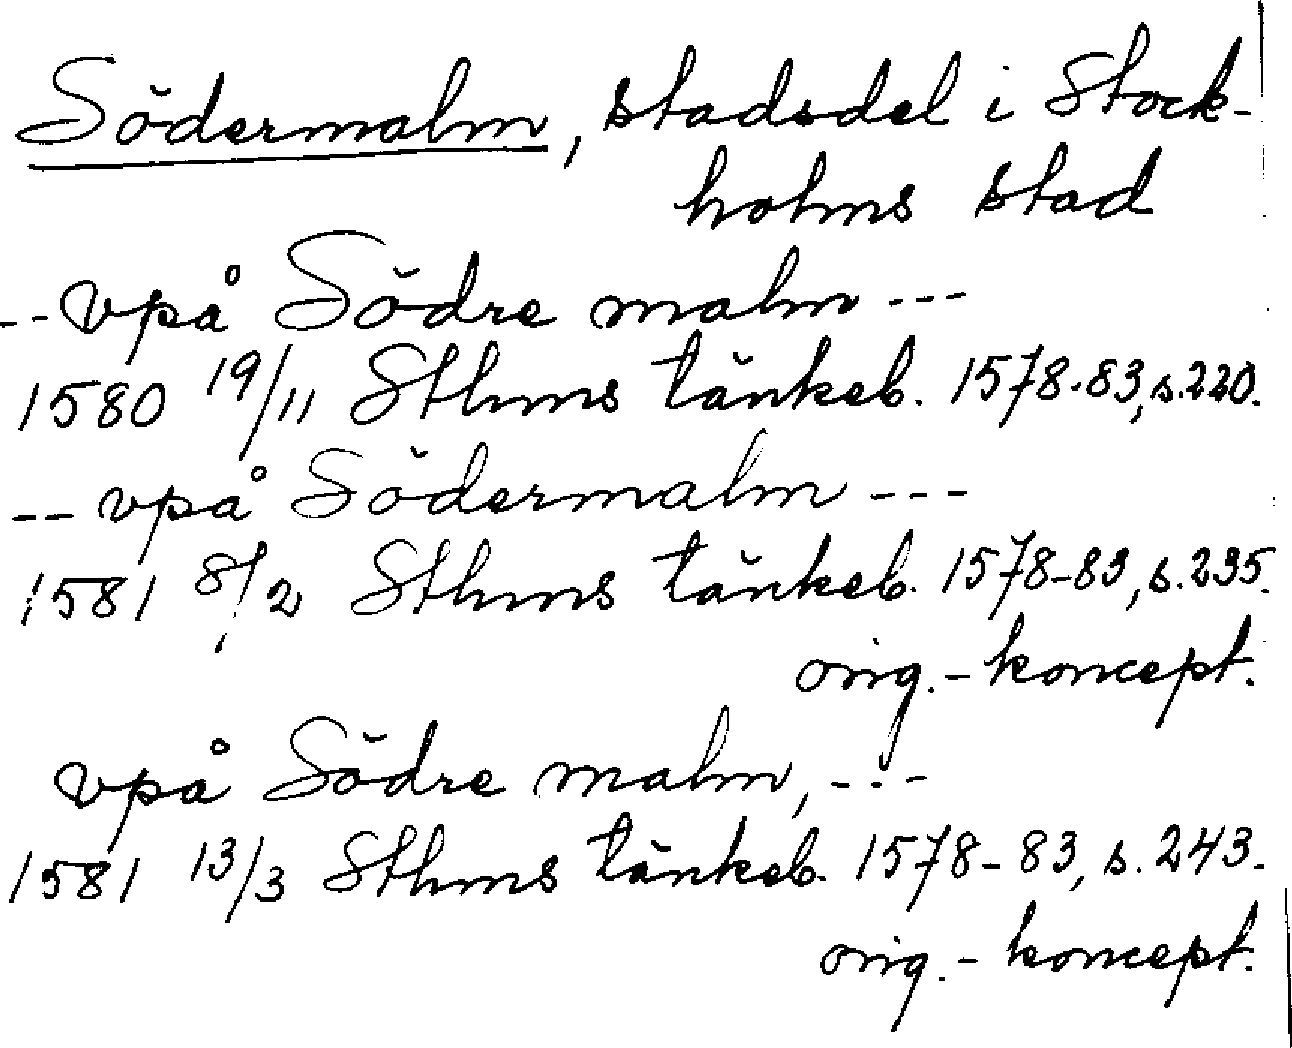 Södermalm, stadsdel i Stock-
holms stad
-- vpå Södre malm ---
1580 19/11 Sthms tänkeb. 1578-83, s. 220.
-- vpå Södermalm ---
1581 8/2 Sthms tänkeb. 1578-83, s. 235.
orig.-koncept.
vpå Södre malm, ---
1581 13/3 Sthms tänkeb. 1578-83, s. 243.
orig.-koncept.